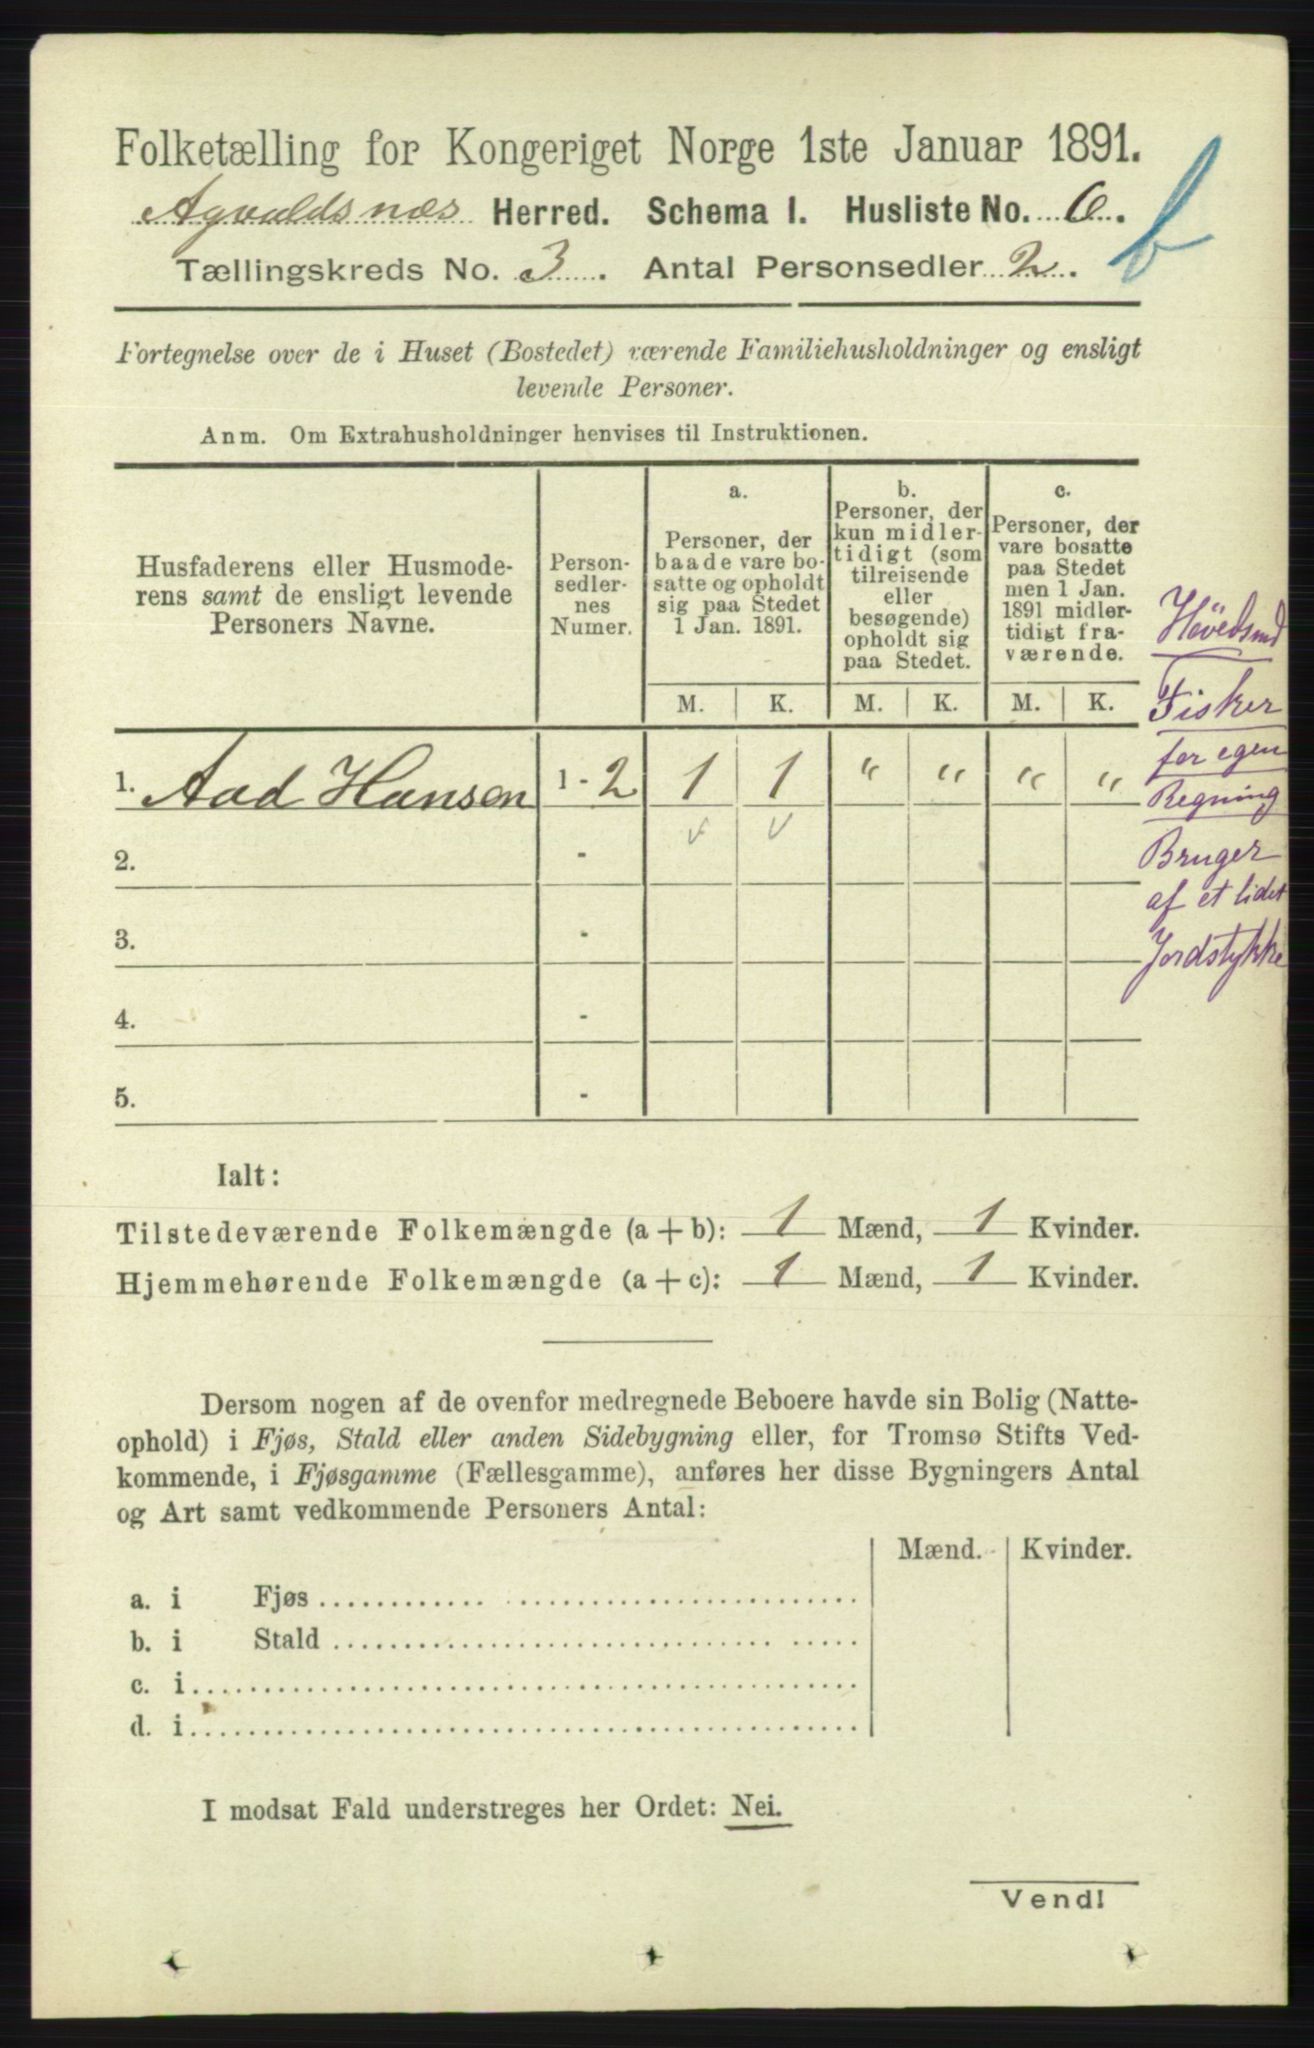 Folketælling for Kongeriget Norge 1ste Januar 1891.
Agvaldsnæs Herred. Schema I. Husliste No. 6.
Tællingskreds No. 3. Antal Personsedler 2.
b
Fortegnelse over de i Huset (Bostedet) værende Familiehusholdninger og ensligt
levende Personer.
Anm. Om Extrahusholdninger henvises til Instruktionen.
Husfaderens eller Husmode-
rens samt de ensligt levende
Personers Navne.
Person-
sedler-
nes
Numer.
a.
Personer, der
baade vare bo-
satte og opholdt
sig paa Stedet
1 Jan. 1891.
b.
Personer, der
kun midler-
tidigt (som
tilreisende
eller
besøgende)
opholdt sig
paa Stedet.
c.
Personer, der
vare bosatte
paa Stedet
men 1 Jan.
1891 midler-
tidigt fra-
værende.
M. K. M. K. M. K.
1. Aad Hansen 1 - 2 1 1 " " " "
2. -
3. -
4. -
5. -
Fisker
for egen
Regning
Bruger
af et lidet
Jordstykke
Ialt:
Tilstedeværende Folkemængde (a + b): 1 Mænd, 1 Kvinder.
Hjemmehørende Folkemængde (a + c): 1 Mænd, 1 Kvinder.
Dersom nogen af de ovenfor medregnede Beboere havde sin Bolig (Natte-
ophold) i Fjøs, Stald eller anden Sidebygning eller, for Tromsø Stifts Ved-
kommende, i Fjøsgamme (Fællesgamme), anføres her disse Bygningers Antal
og Art samt vedkommende Personers Antal:
Mænd. Kvinder.
a. i Fjøs
b. i Stald
c. i
d. i
I modsat Fald understreges her Ordet: Nei.
Vend!